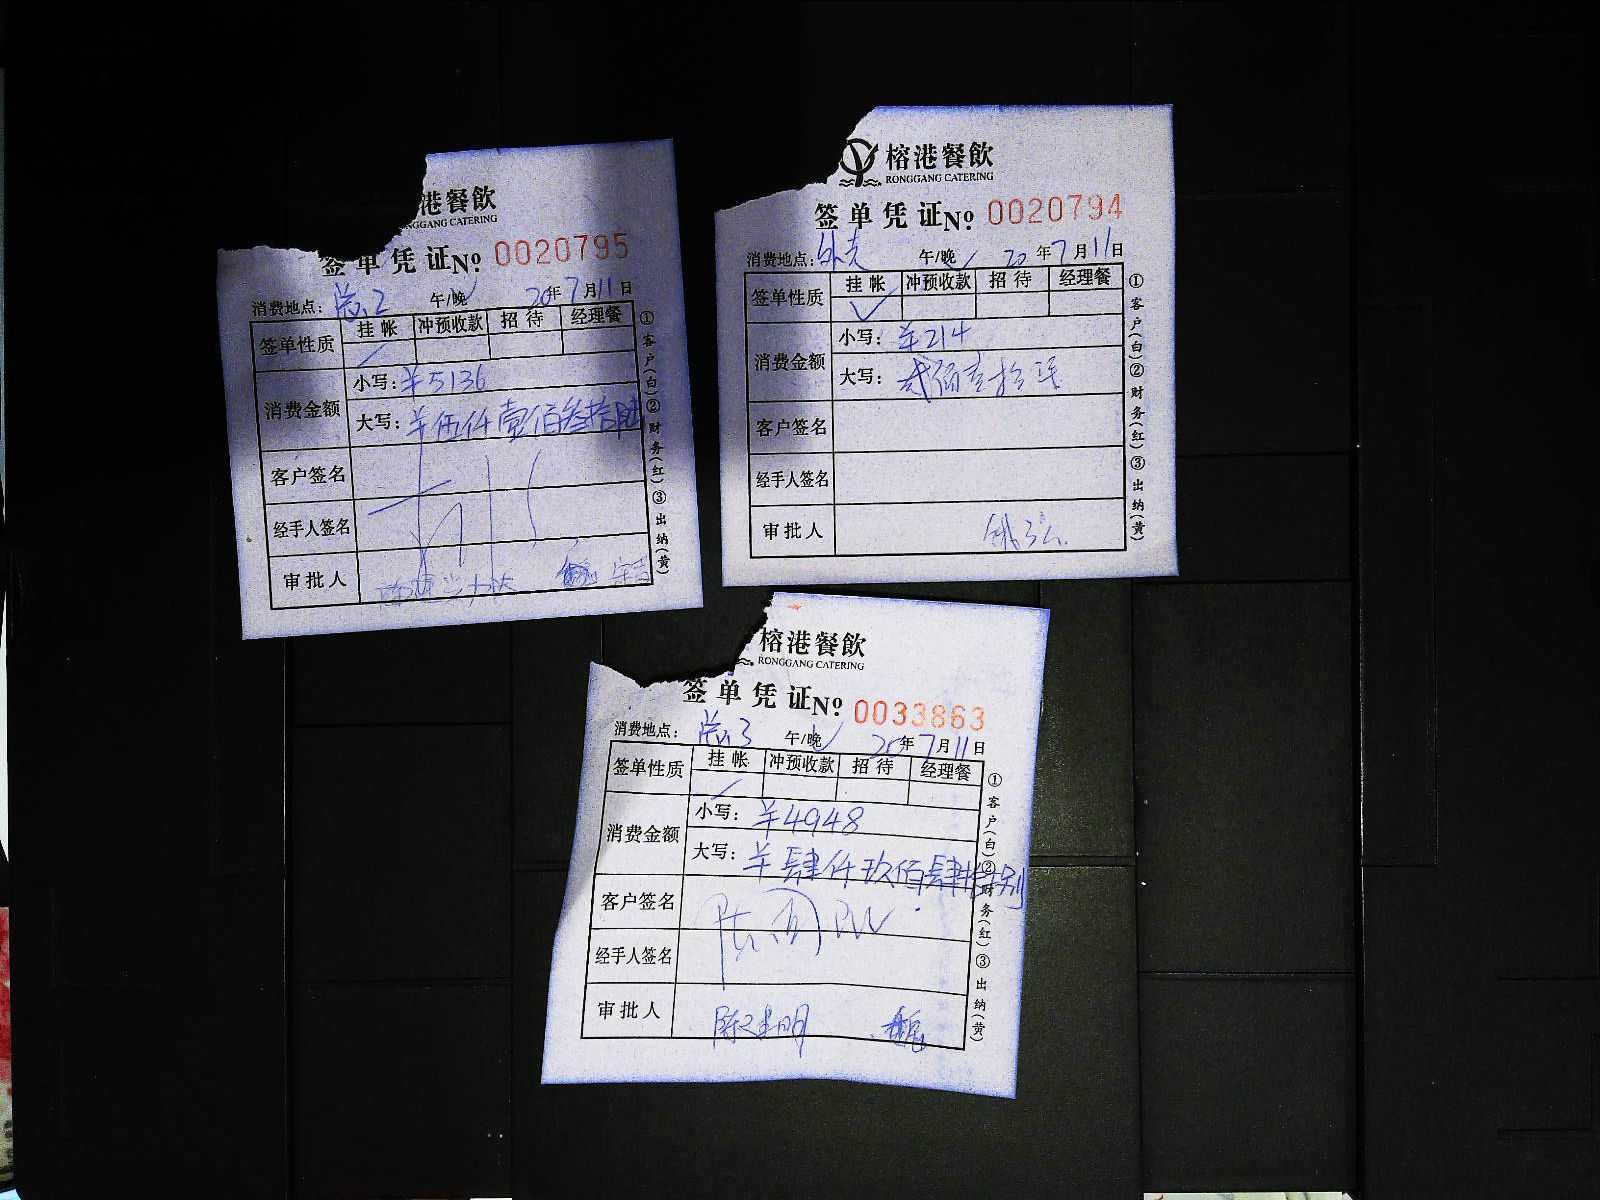 港餐飲
NGGANG CATERING
签单凭证№ 0020795
消费地点: 总.2 午/晚√ 20年7月11日
签单性质 挂帐 冲预收款 招待 经理餐
消费金额 小写: ¥5136
大写: ¥伍仟壹佰叁拾陆
客户签名
经手人签名
审批人
①客户(白)②财务(红)③出纳(黄)
榕港餐飲
RONGGANG CATERING
签单凭证№ 0020794
消费地点: 外卖 午/晚√ 20年7月11日
签单性质 挂帐 冲预收款 招待 经理餐
√
消费金额 小写: ¥214
大写: 贰佰壹拾
客户签名
经手人签名
审批人
①客户(白)②财务(红)③出纳(黄)
榕港餐飲
RONGGANG CATERING
签单凭证№ 0033863
消费地点: 总.3 午/晚√ 20年7月11日
签单性质 挂帐 冲预收款 招待 经理餐
消费金额 小写: ¥4948
大写: ¥肆仟玖佰肆拾捌
客户签名
经手人签名
审批人 陈建明
①客户(白)②财务(红)③出纳(黄)